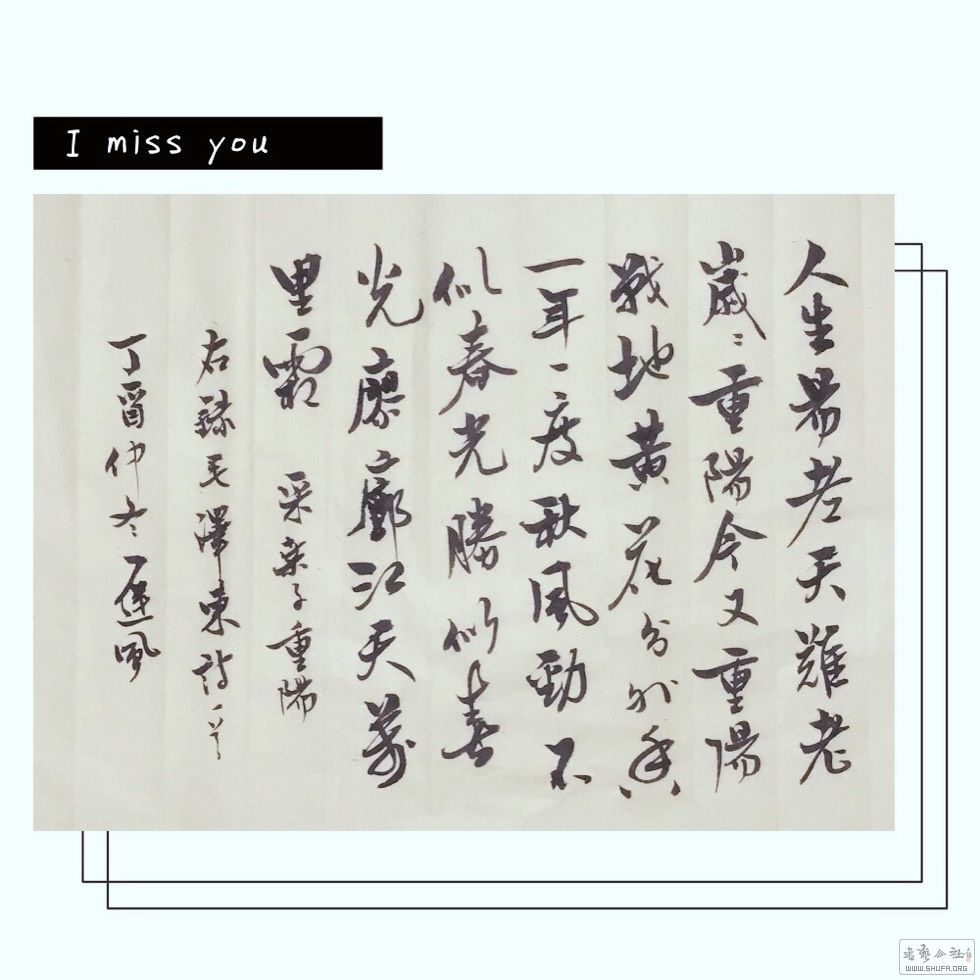 I miss you
人生易老天難老
歲〻重陽今又重陽
戰地黃花分外香
一年一度秋風勁不
似春光勝似春
光廖廓江天萬
里霜 采桒子重陽
右錄毛澤東詩一首
丁酉仲冬
書藝公社
WWW.SHUFA.ORG